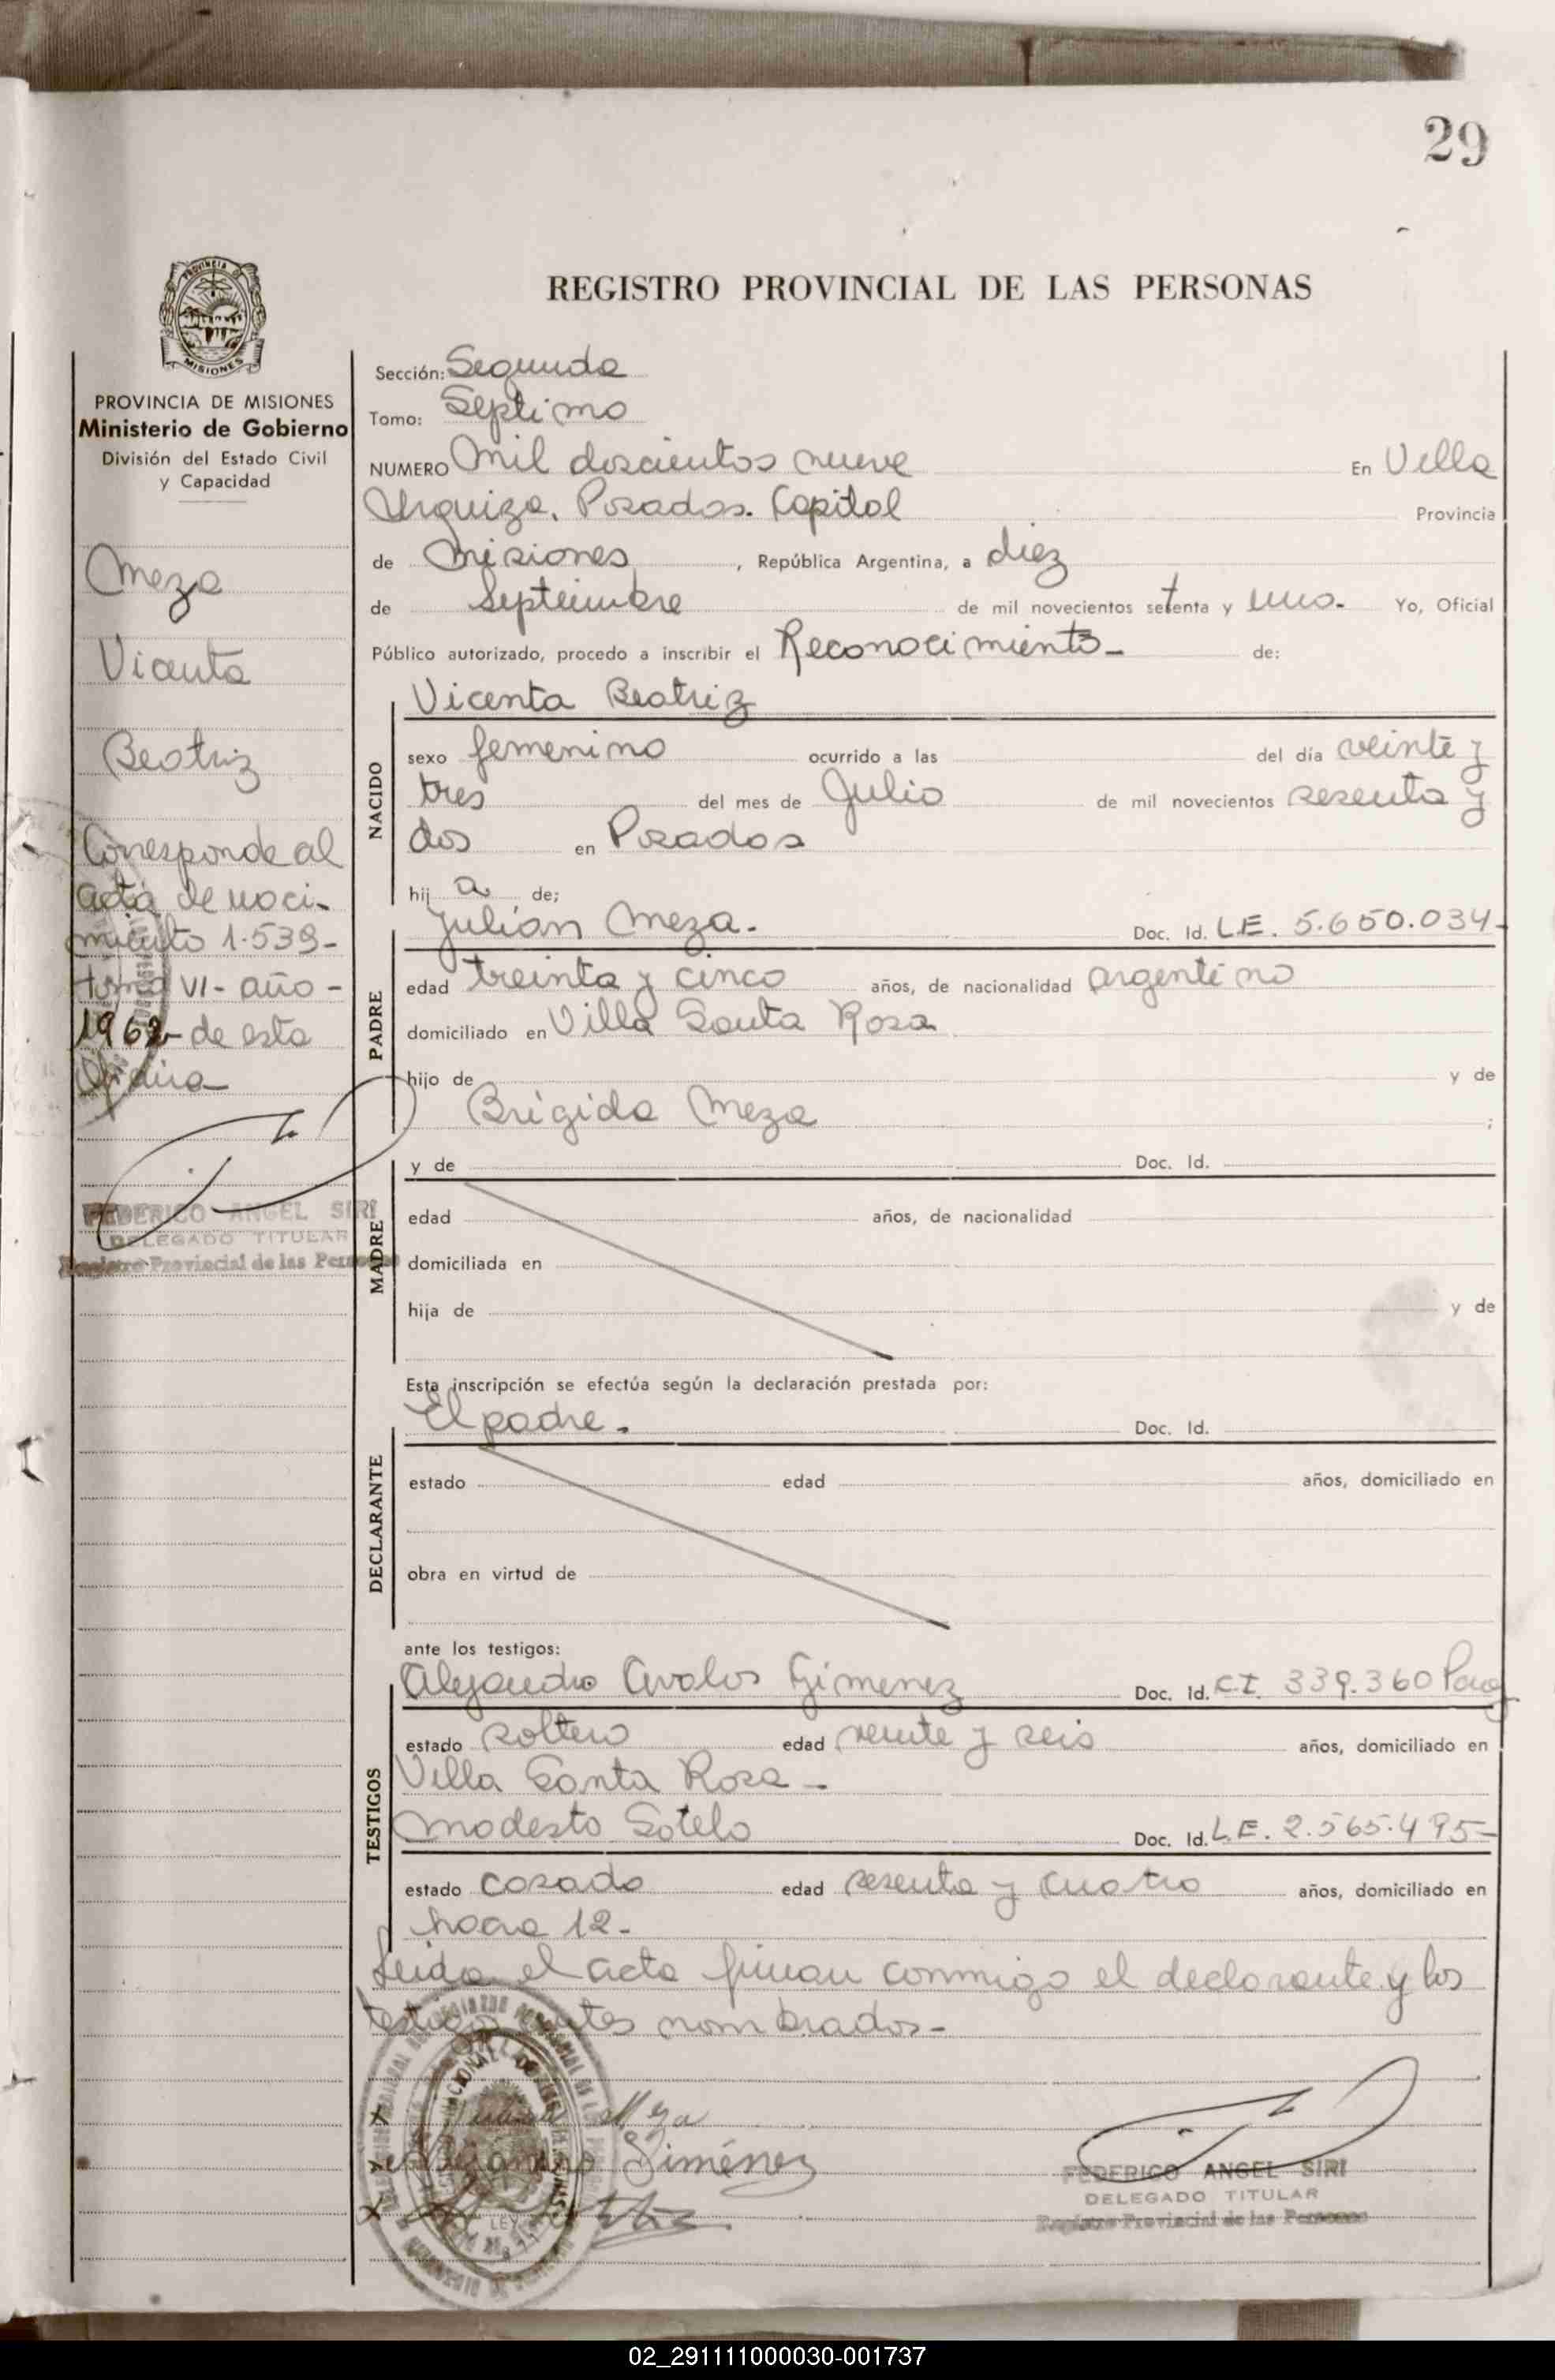 29
PROVINCIA DE
MISIONES
REGISTRO PROVINCIAL DE LAS PERSONAS
PROVINCIA DE MISIONES
Ministerio de Gobierno
División del Estado Civil
y Capacidad
Meza
Vicenta
Beatriz
Corresponde al
acta de naci-
miento 1.539-
tomo VI - año -
1962 de esta
Oficina
FEDERICO ANGEL SIRI
DELEGADO TITULAR
Registro Provincial de las Personas
Sección: Segunda
Tomo: Septimo
NUMERO Mil doscientos nueve En Villa
Urquiza. Posadas. Capital Provincia
de Misiones, República Argentina, a diez
de Septiembre de mil novecientos setenta y uno. Yo, Oficial
Público autorizado, procedo a inscribir el Reconocimiento - de:
NACIDO
Vicenta Beatriz
sexo femenino ocurrido a las del día veinte y
tres del mes de Julio de mil novecientos sesenta y
dos en Posadas
hij a de;
PADRE
Julián Meza. Doc. Id. L.E. 5.650.034-
edad treinta y cinco años, de nacionalidad argentino
domiciliado en Villa Santa Rosa
hijo de y de
Brigida Meza ;
MADRE
y de Doc. Id.
edad años, de nacionalidad
domiciliada en
hija de y de
Esta inscripción se efectúa según la declaración prestada por:
DECLARANTE
El padre. Doc. Id.
estado edad años, domiciliado en
obra en virtud de
ante los testigos:
TESTIGOS
Alejandro Avalos Gimenez Doc. Id. C.I. 339.360 Parag
estado soltero edad veinte y seis años, domiciliado en
Villa Santa Rosa -
Modesto Sotelo Doc. Id. L.E. 2.565.495-
estado casado edad sesenta y cuatro años, domiciliado en
12-
Leida el acta firman conmigo el declarante y los
testigos antes nombrados-
Julian Meza
Alejandro Giménez
FEDERICO ANGEL SIRI
DELEGADO TITULAR
Registro Provincial de las Personas
02_291111000030-001737